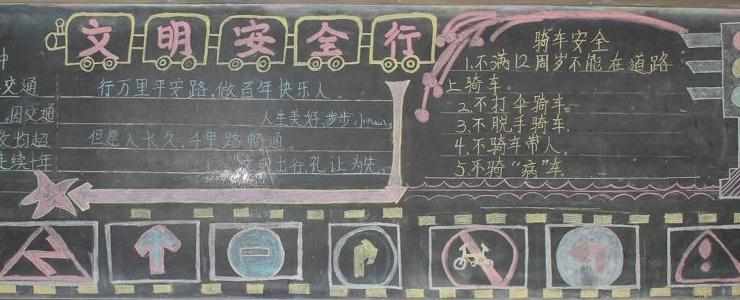 文明安全行
交通
因交通
均超
连续十年
行万里平安路,做百年快乐人
人生美好,步步小心
但愿人长久,千里路畅通
行,礼让为先
骑车安全
1.不满12周岁不能在道路
上骑车。
2.不打伞骑车。
3.不脱手骑车.
4.不骑车带人.
5.不骑“病”车.